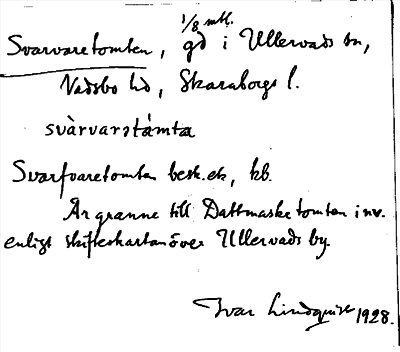 1/8 mtl.
Svarvaretomten, gd i Ullervads sn,
Vadsbo hd, Skaraborgs l.
svàrvarstámta
Svarfvaretomten besk.etc, kb.
Är granne till Dattmaske tomten inv.
enligt skifteskartan över Ullervads by.
Ivar Lindquist 1928.